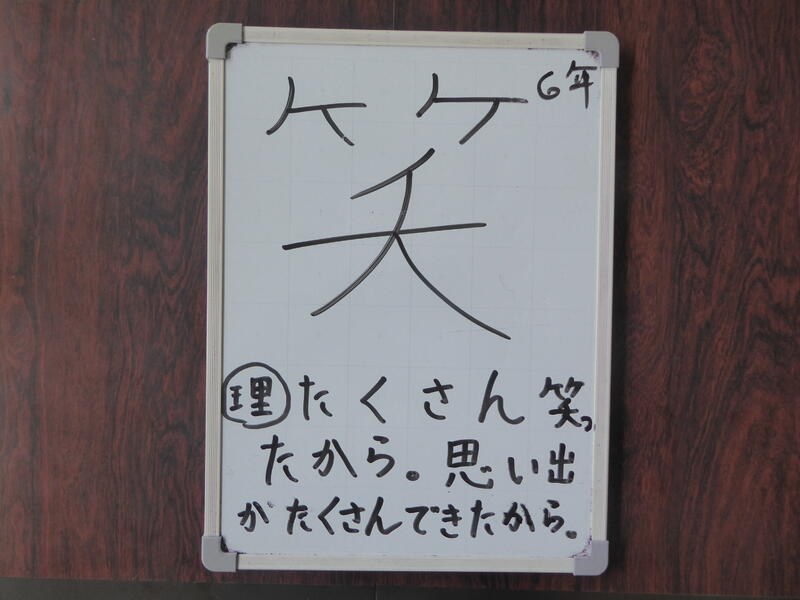 6年
笑
理 たくさん笑っ
たから。思い出
がたくさんできたから。